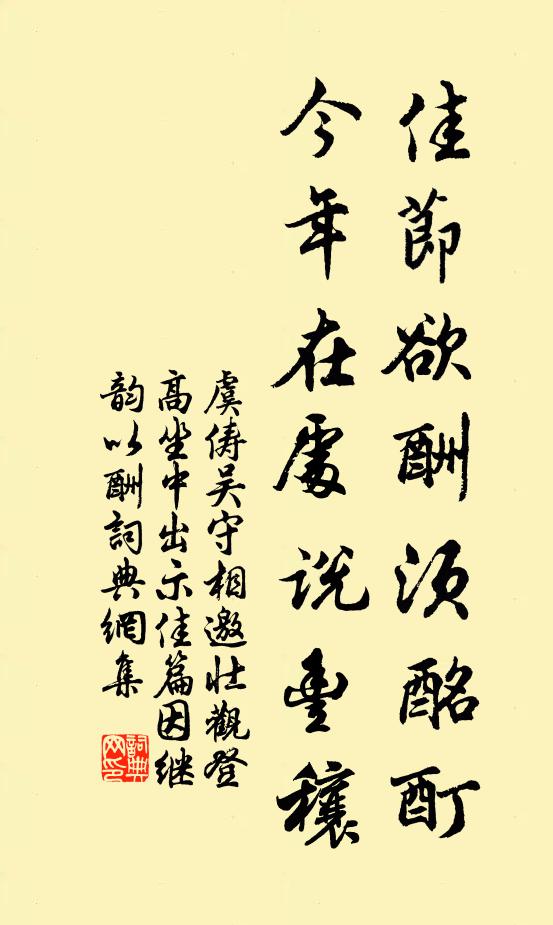 佳節欲酬須酩酊
今年在處說豊穰
虞儔吴守相邀壯觀登
高坐中出示佳篇因继
韵以酬詞典網集
詞典
网印